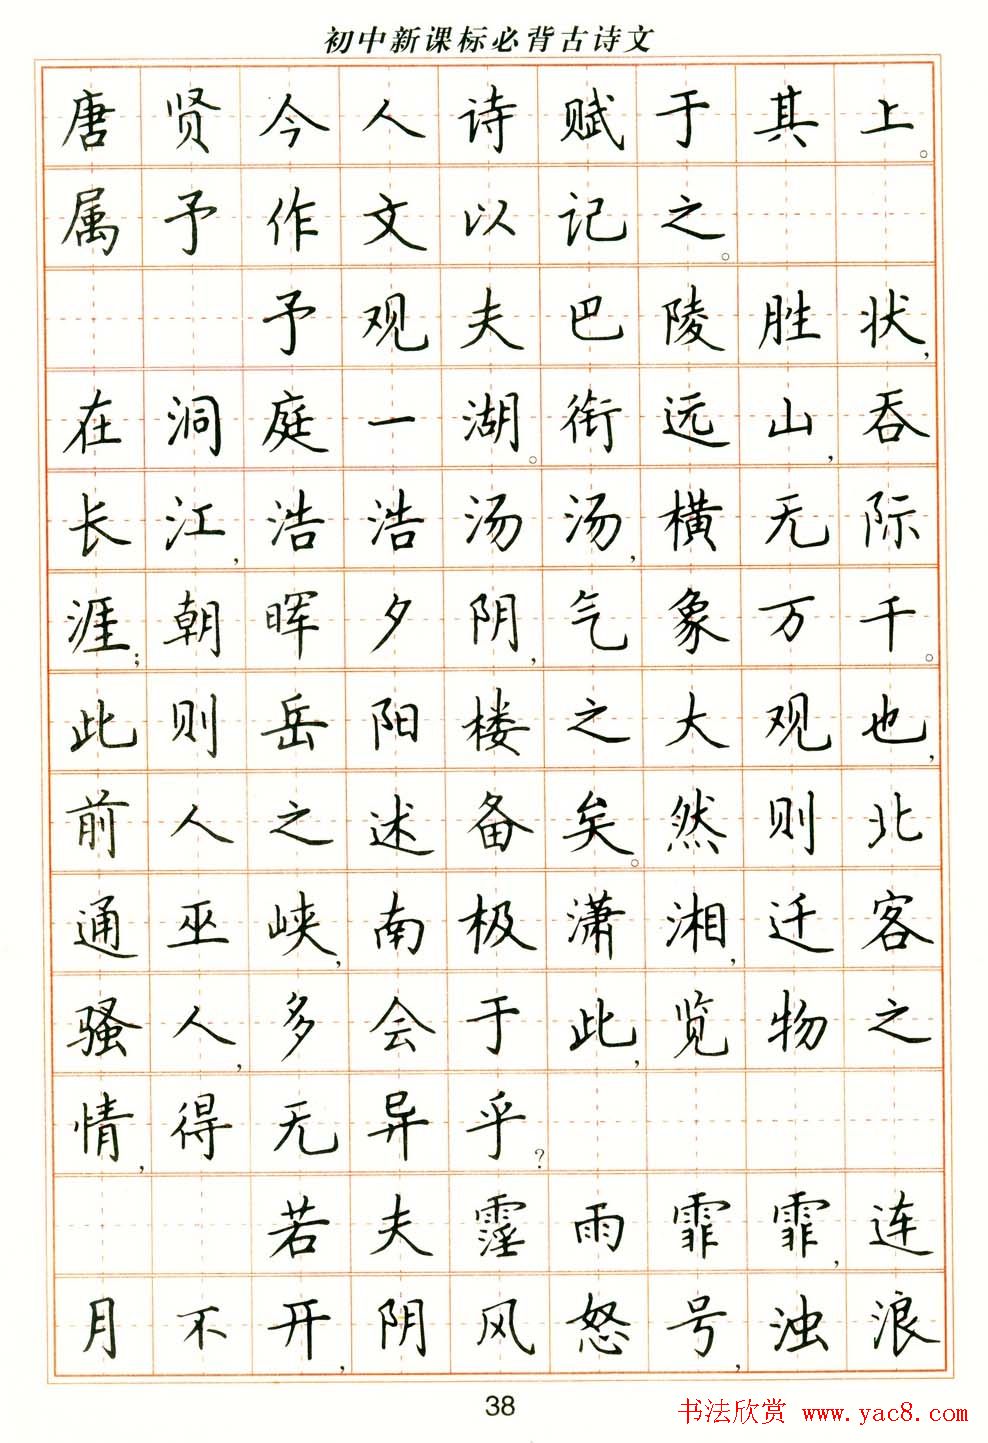 初中新课标必背古诗文
唐贤今人诗赋于其上。
属予作文以记之。
予观夫巴陵胜状,
在洞庭一湖。衔远山,吞
长江,浩浩汤汤,横无际
涯;朝晖夕阴,气象万千。
此则岳阳楼之大观也,
前人之述备矣。然则北
通巫峡,南极潇湘,迁客
骚人,多会于此,览物之
情,得无异乎?
若夫霪雨霏霏,连
月不开,阴风怒号,浊浪
38
书法欣赏 www.yac8.com